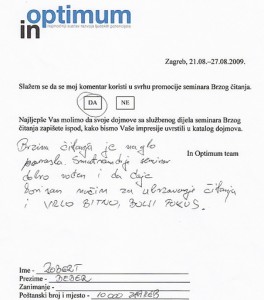 in optimum
Zagreb, 21.08.–27.08.2009.
Slažem se da se moj komentar koristi u svrhu promocije seminara Brzog čitanja.
DA NE
Najljepše Vas molimo da svoje dojmove sa službenog dijela seminara Brzog
čitanja zapišete ispod, kako bismo Vaše impresije uvrstili u katalog dojmova.
In Optimum team
Brzina čitanja je naglo
porasla. Smatram da je seminar
dobro vođen i da daje
način za ubrzavanje čitanja
i VRLO BITNO, BOLJI FOKUS.
Ime - ROBERT
Prezime -
Zanimanje -
Poštanski broj i mjesto - 10 000 ZAGREB